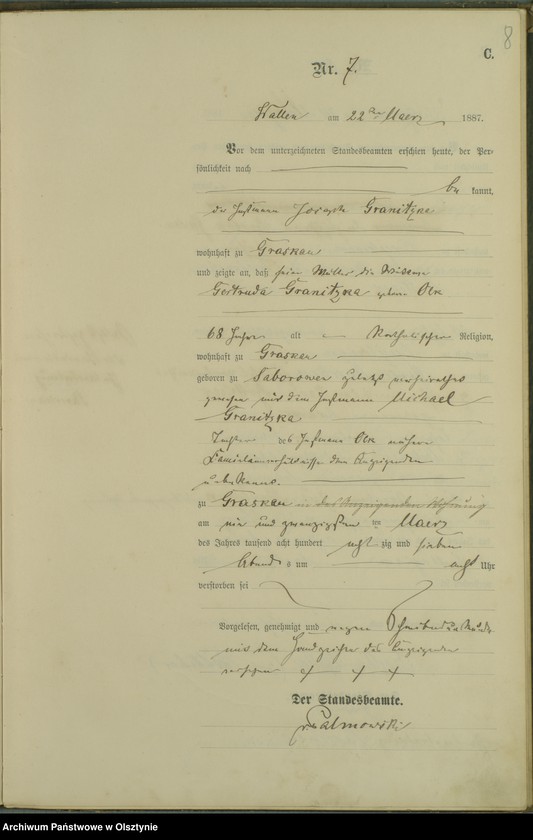 8
C.
Nr. 7.
Wallen am 22ten Maerz 1887.
Vor dem unterzeichneten Standesbeamten erschien heute, der Per-
sönlichkeit nach
be kannt,
der Joseph Granitzka
wohnhaft zu Graskau
und zeigte an, daß seine Mutter die Wittwe
Gertruda Granitzka geborne Olk
68 Jahre alt Katholischer Religion,
wohnhaft zu Graskau
geboren zu Saborowen zuletzt verheirathet
gewesen mit dem Michael
Granitzka
Tochter des Olk nähere
Familienverhältnisse dem Anzeigenden
unbekannt.
zu Graskau in des Anzeigenden Wohnung
am ein und zwanzigsten ten Maerz
des Jahres tausend acht hundert acht zig und sieben
Abends um acht Uhr
verstorben sei
Vorgelesen, genehmigt und wegen
mit dem Handzeichen des Anzeigenden
versehen + + +
Der Standesbeamte.
Palmowski
Archiwum Państwowe w Olsztynie